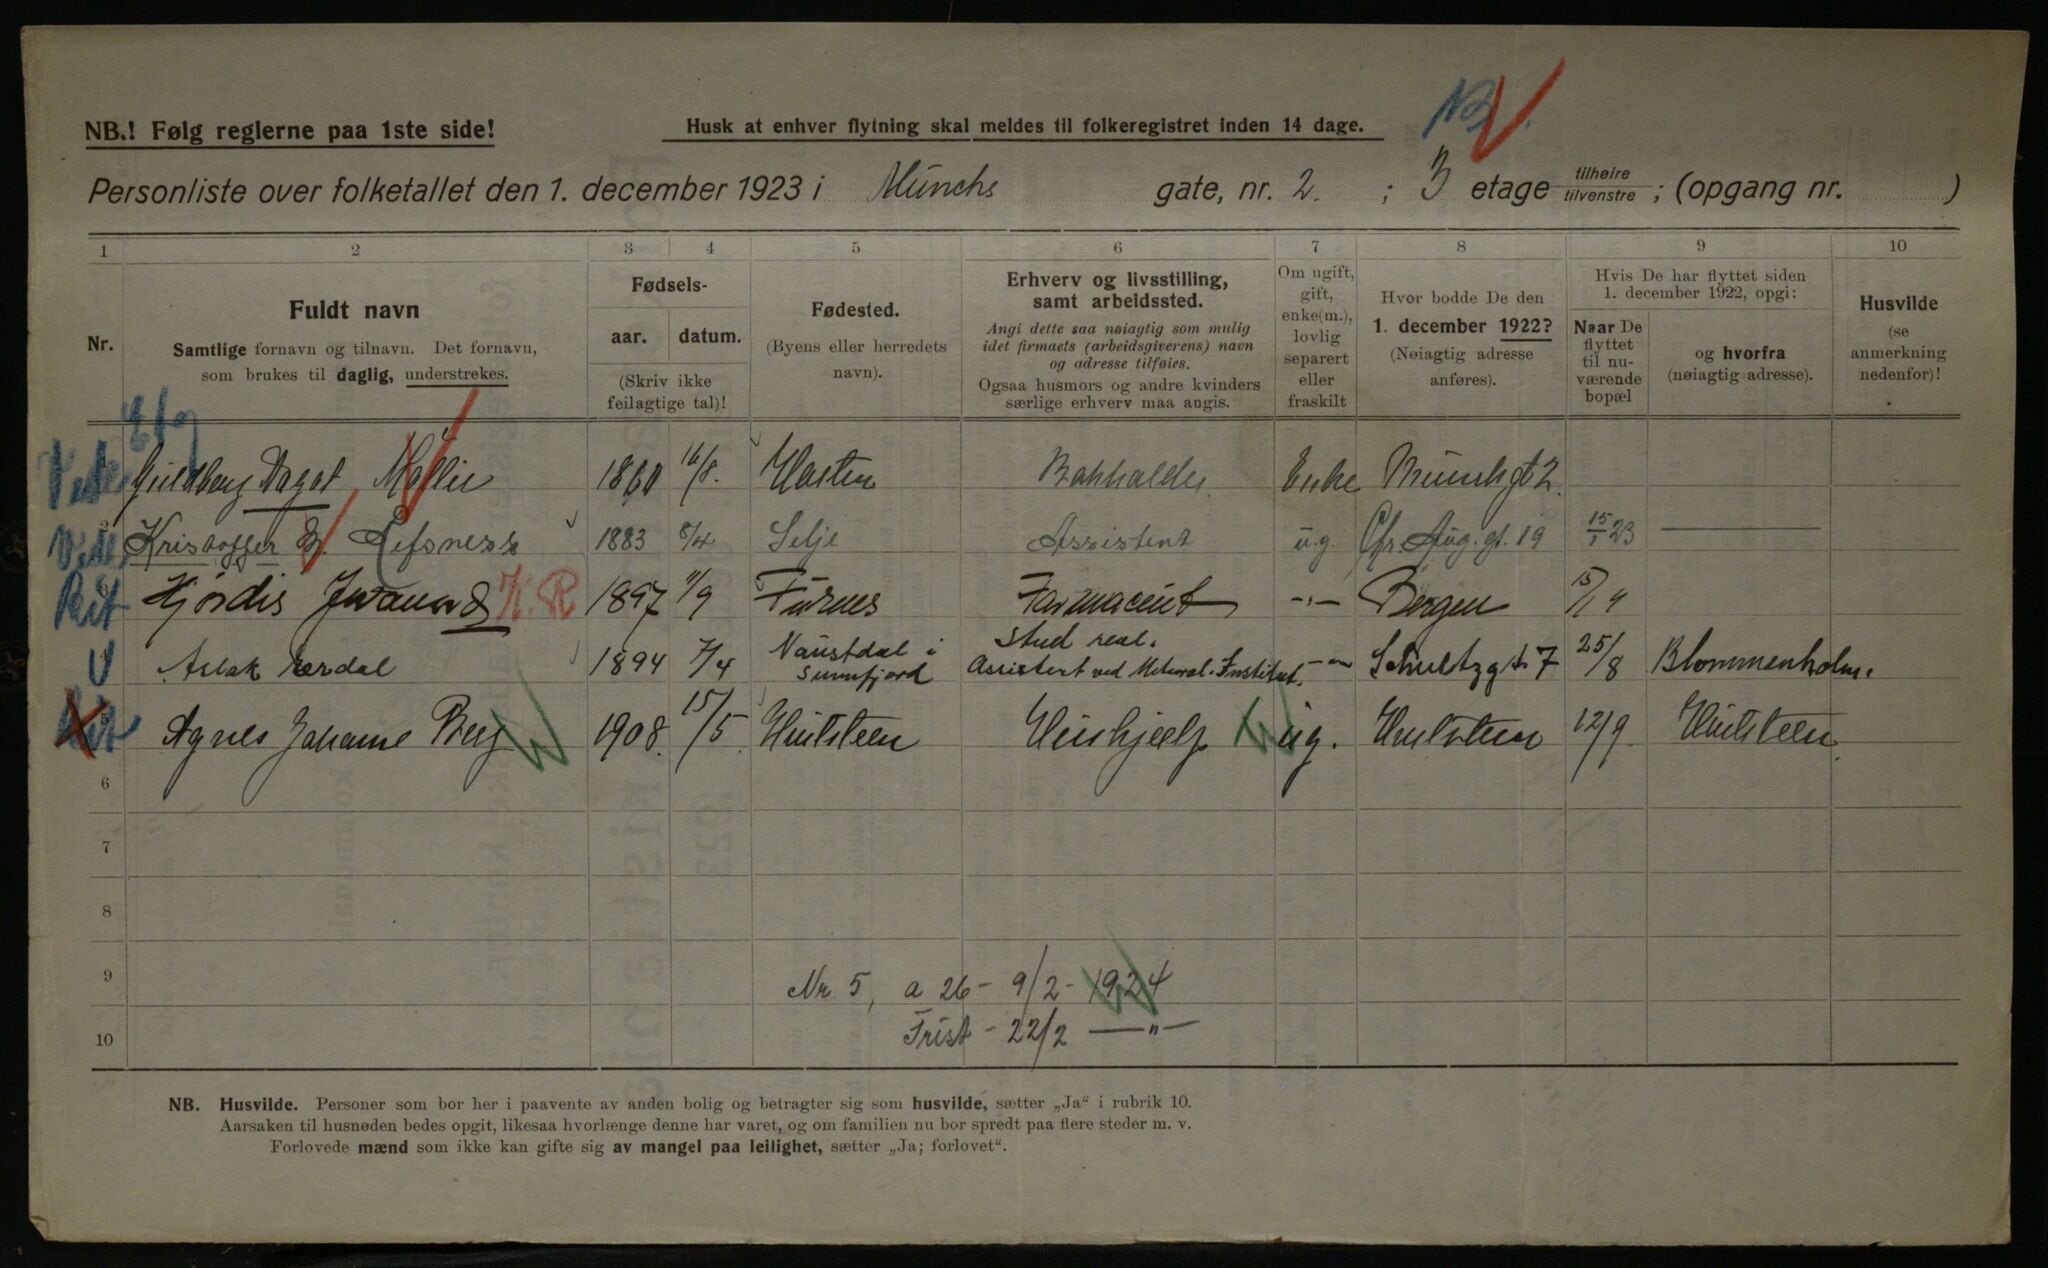 NB.! Følg reglerne paa 1ste side!
Husk at enhver flytning skal meldes til folkeregistret inden 14 dage.
Personliste over folketallet den 1. december 1923 i Münchs gate, nr. 2. ; 3 etage tilhøire tilvenstre ; (opgang nr. )
1 2 3 4 5 6 7 8 9 10
Nr.
Fuldt navn
Samtlige fornavn og tilnavn. Det fornavn,
som brukes til daglig, understrekes.
Fødsels-
aar. datum.
(Skriv ikke
feilagtige tal)!
Fødested.
(Byens eller herredets
navn).
Erhverv og livsstilling,
samt arbeidssted.
Angi dette saa nøiagtig som mulig
idet firmaets (arbeidsgiverens) navn
og adresse tilføies.
Ogsaa husmors og andre kvinders
særlige erhverv maa angis.
Om ugift,
gift,
enke(m.),
lovlig
separert
eller
fraskilt
Hvor bodde De den
1. december 1922?
(Nøiagtig adresse
anføres).
Hvis De har flyttet siden
1. december 1922, opgi:
Naar De
flyttet
til nu-
værende
bopæl
og hvorfra
(nøiagtig adresse).
Husvilde
(se
anmerkning
nedenfor)!
Guldberg Dagot Møller 16/8. Enke
Kristoffer Refsness 1883 8/4 Selje Assistent u.g. Chr. Aug. gt. 19 15/1 23
Hjørdis K. R 1897 11/9 Furnes Farmaceut -"- Bergen 15/4
Stud real.
Aslak 1894 7/4 Naustdal i Sunnfjord Assistent ved Meteorol. Institut. -"- Schultzgt. 7 25/8 Blommenholm.
Agnes Johanne Berg 1908. 15/5 Hurtsteen Hushjelp ug. 12/9. Hurtsteen
6
7
8
9 Nr 5, a 26 - 9/2 - 1924
10 Frist - 22/2 —"—
NB. Husvilde. Personer som bor her i paavente av anden bolig og betragter sig som husvilde, sætter „Ja“ i rubrik 10.
Aarsaken til husnøden bedes opgit, likesaa hvorlænge denne har varet, og om familien nu bor spredt paa flere steder m. v.
Forlovede mænd som ikke kan gifte sig av mangel paa leilighet, sætter „Ja; forlovet“.